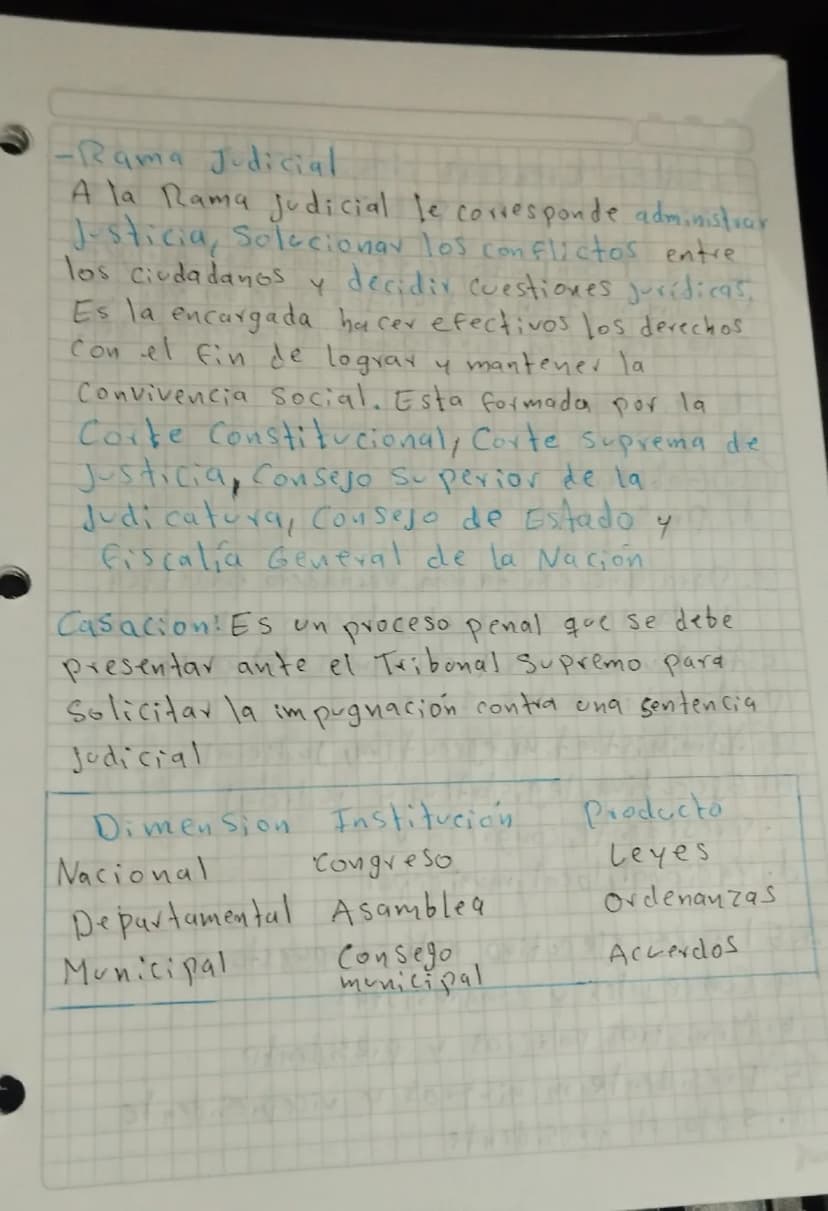 -Rama Judicial
A la Rama judicial le corresponde administrar
Justicia, Solucionar los conflictos entre
los ciudadanos y decidir cuestiones jurídicas.
Es la encargada hacer efectivos los derechos
con el fin de lograr y mantener la
Convivencia Social. Esta formada por la
Corte Constitucional, Corte Suprema de
Justicia, Consejo Superior de la
Judicatura, Consejo de Estado y
Fiscalía General de la Nación
Casacion: Es un proceso penal que se debe
presentar ante el Tribunal Supremo para
Solicitar la impugnación contra una sentencia
judicial
Dimension Institución Producto
Nacional Congreso Leyes
Departamental Asamblea Ordenanzas
Municipal Consego municipal Acuerdos